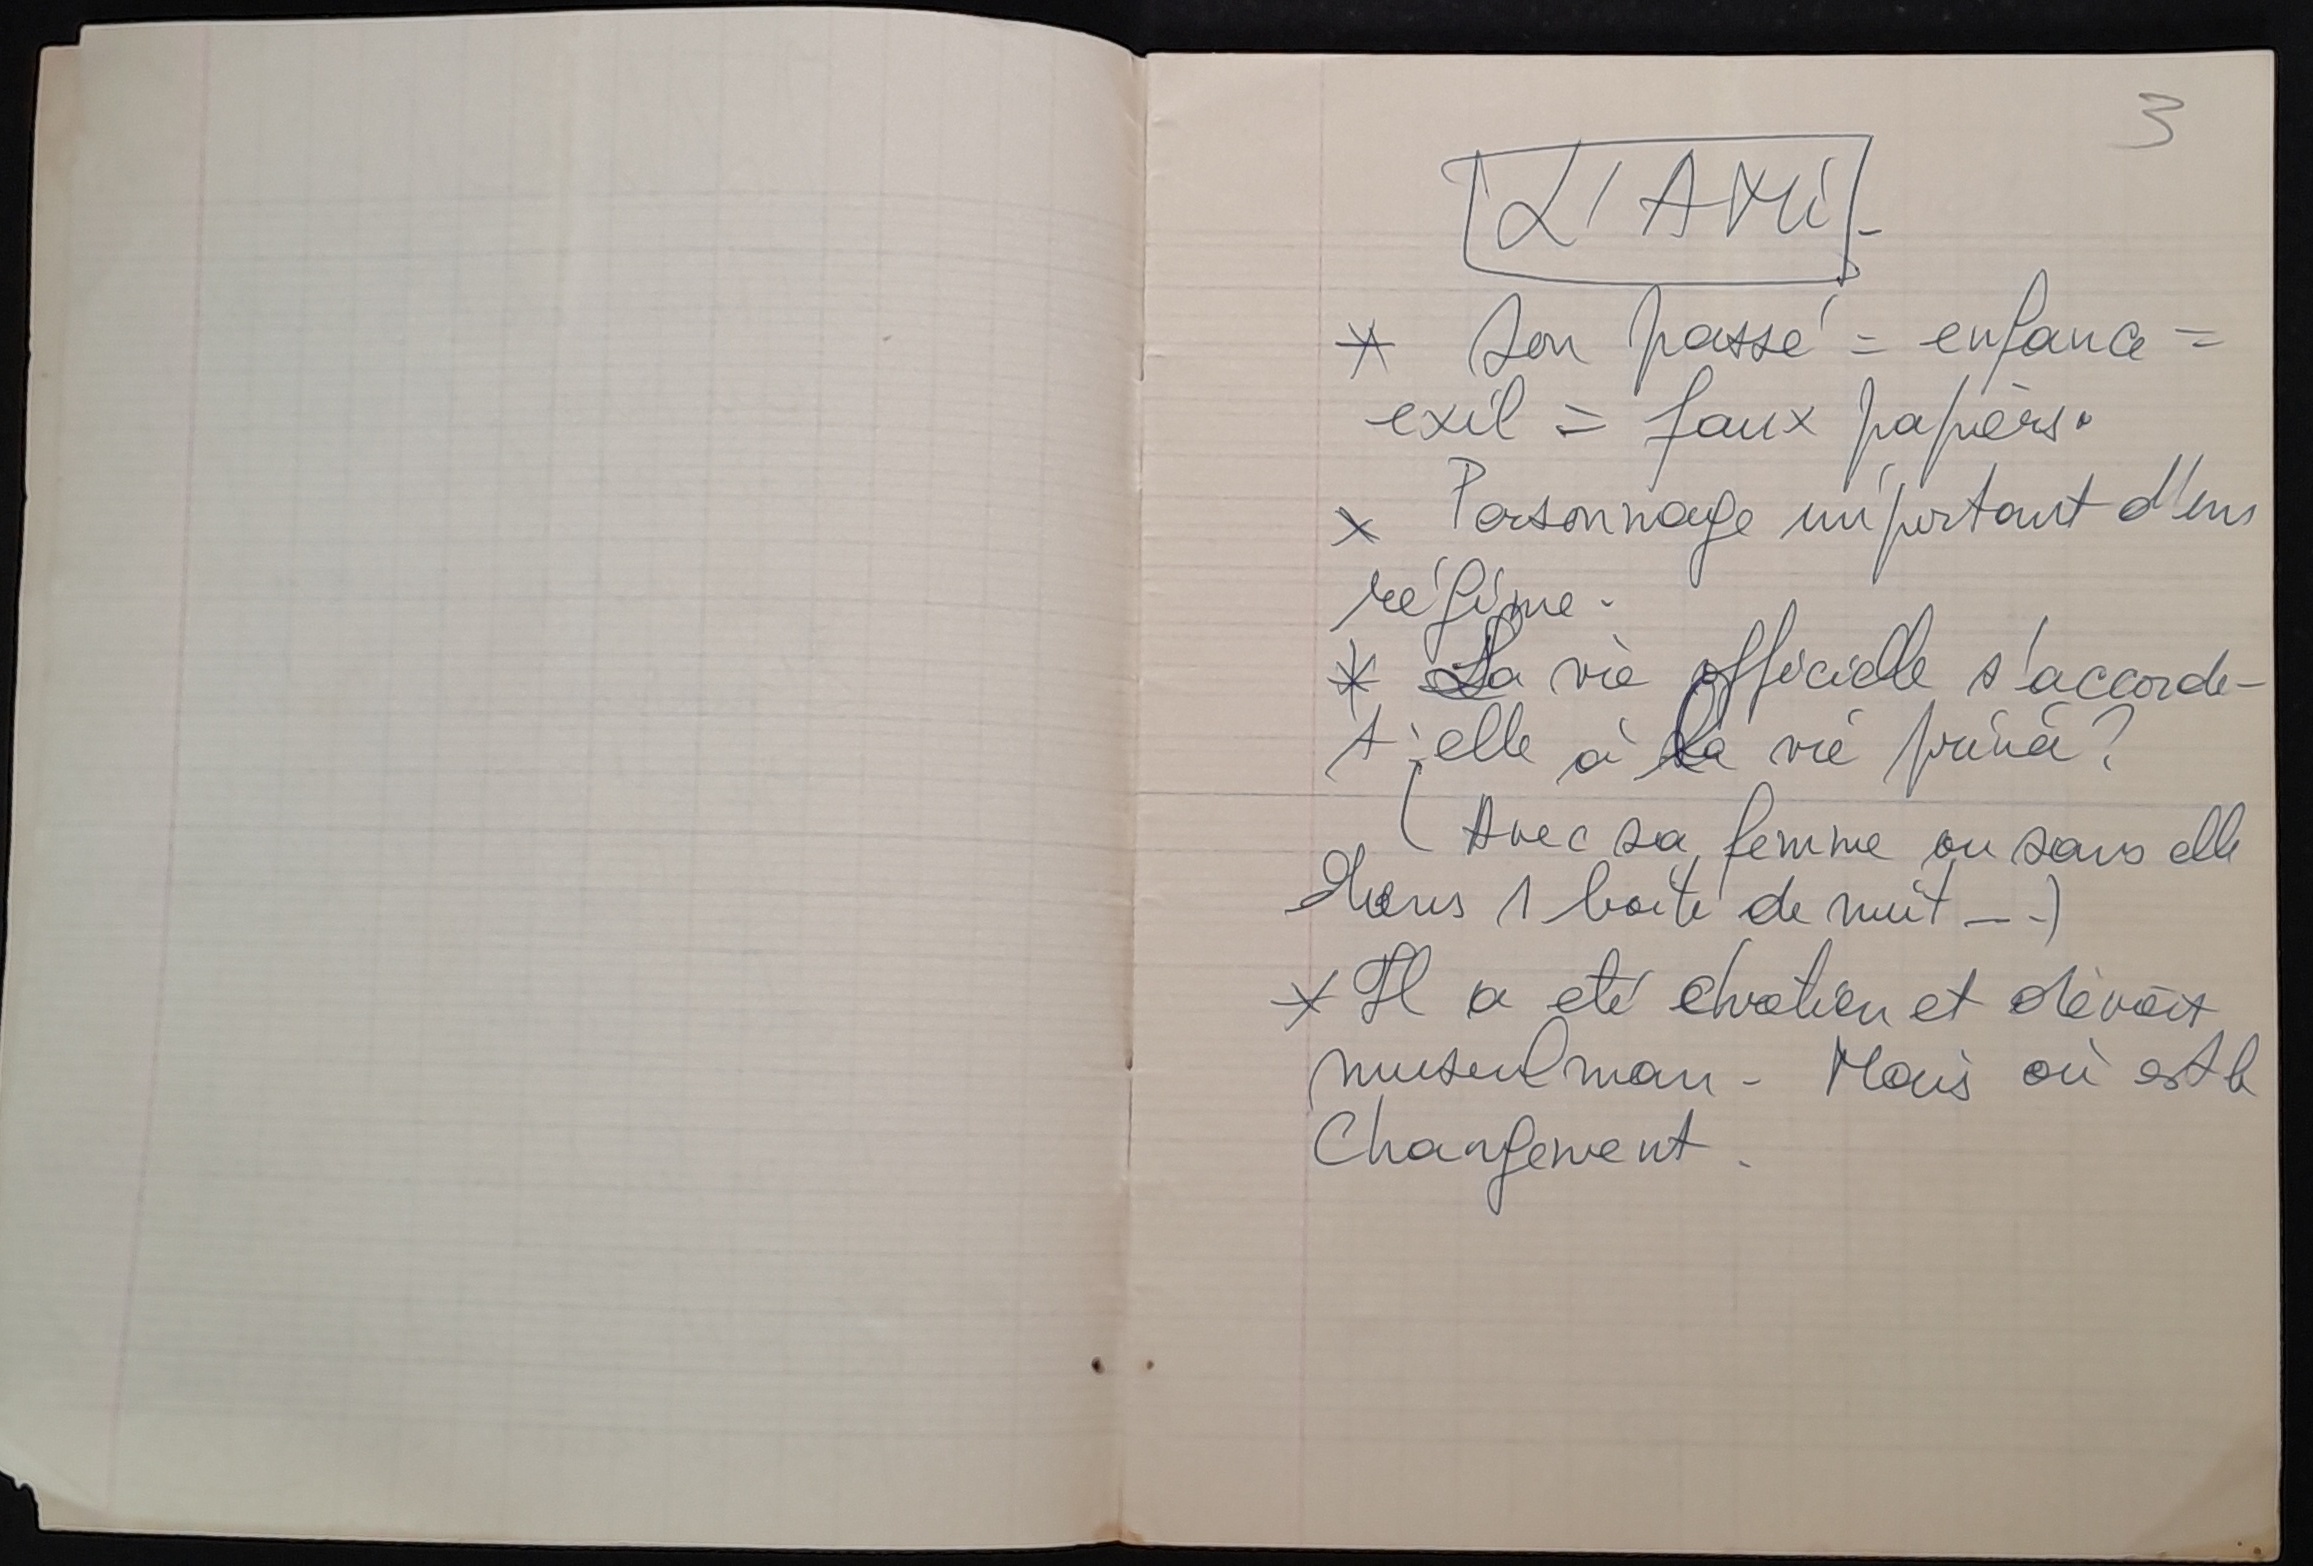 3
L'AMi -
* Son passé = enfance =
exil = faux papiers.
x Personnage important d'un
régime.
* La vie officielle s'accorde-
t-elle à la vie privée ?
( Avec sa femme ou sans elle
dans 1 boîte de nuit - -)
* Il a été chrétien et devait
musulman - Mais où est le
Changement.